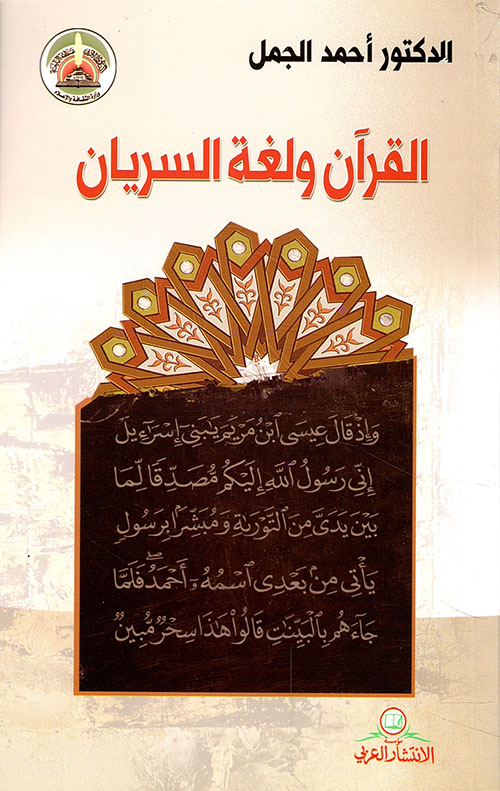 الدكتور أحمد الجمل
وزارة الثقافة والإعلام
القرآن ولغة السريان
وَإِذْ قَالَ عِيسَى ٱبْنُ مَرْيَمَ يَٰبَنِىٓ إِسْرَٰٓءِيلَ
إِنِّى رَسُولُ ٱللَّهِ إِلَيْكُم مُّصَدِّقًا لِّمَا
بَيْنَ يَدَىَّ مِنَ ٱلتَّوْرَىٰةِ وَمُبَشِّرًۢا بِرَسُولٍ
يَأْتِى مِنۢ بَعْدِى ٱسْمُهُۥٓ أَحْمَدُ ۖ فَلَمَّا
جَآءَهُم بِٱلْبَيِّنَٰتِ قَالُوا۟ هَٰذَا سِحْرٌ مُّبِينٌ
مؤسسة
الانتشار العربي